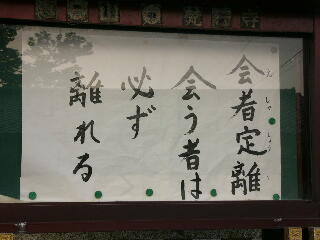 会者定離
えしゃじょうり
会う者は
必ず
離れる